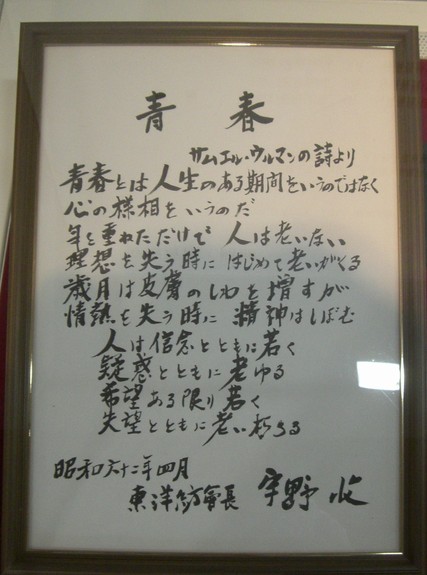 青春
サムエル・ウルマンの詩より
青春とは人生のある期間をいうのではなく
心の様相をいうのだ
年を重ねただけで人は老いない
理想を失う時にはじめて老いがくる
歳月は皮膚のしわを増すが
情熱を失う時に精神はしぼむ
人は信念とともに若く
疑惑とともに老ゆる
希望ある限り若く
失望とともに老い朽ちる
昭和六十二年四月
東洋紡會長 宇野收